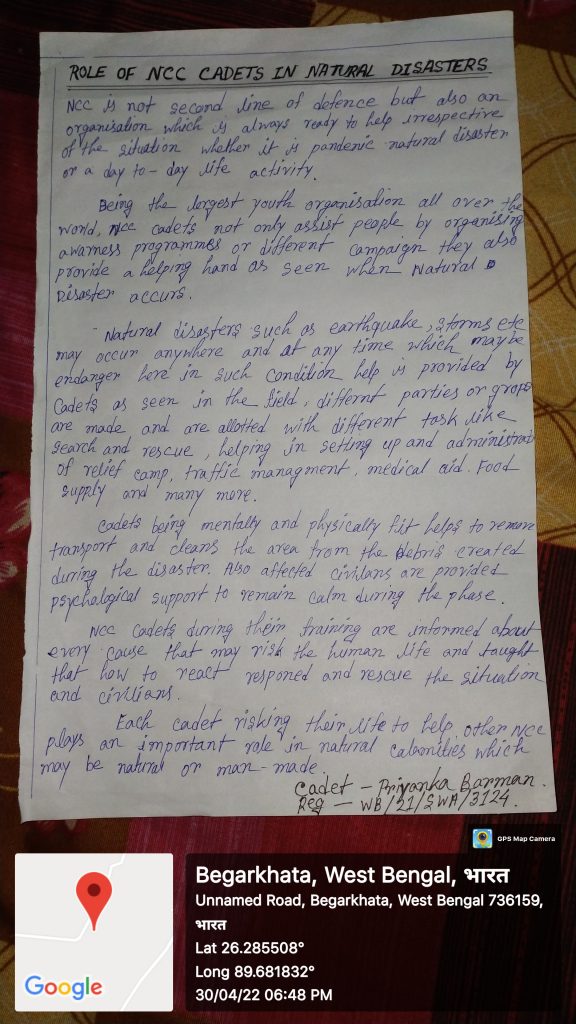 ROLE OF NCC CADETS IN NATURAL DISASTERS
NCC is not second line of defence but also an
organisation which is always ready to help irrespective
of the situation whether it is pandenic natural disaster
or a day to-day life activity.
Being the largest youth organisation all over the
world, NCC cadets not only assist people by organising
awarness programmes or different campaign they also
provide a helping hand as seen when Natural
Disaster accurs.
Natural disasters such as earthquake, storms etc
may occur anywhere and at any time which maybe
endanger here in such condition help is provided by
Cadets as seen in the field, differnt parties or grops
are made and are allotted with different task like
search and rescue, helping in setting up and administrati
of relief camp, traffic managment, medical aid. Food
supply and many more.
Cadets being mentally and physically fit helps to remove
transport and cleans the area from the debris created
during the disaster. Also affected civilans are provided
psychlogical support to remain calm during the phase.
NCC Cadets during their training are informed about
every cause that may risk the human life and taught
that how to react responed and rescue the situation
and civilians.
Each cadet risking their life to help other NCC
plays an important role in natural calamities which
may be natural or man-made.
Cadet - Priyanka Barman.
Reg - WB/21/SWA/3124.
GPS Map Camera
Begarkhata, West Bengal, भारत
Unnamed Road, Begarkhata, West Bengal 736159,
भारत
Lat 26.285508°
Long 89.681832°
30/04/22 06:48 PM
Google